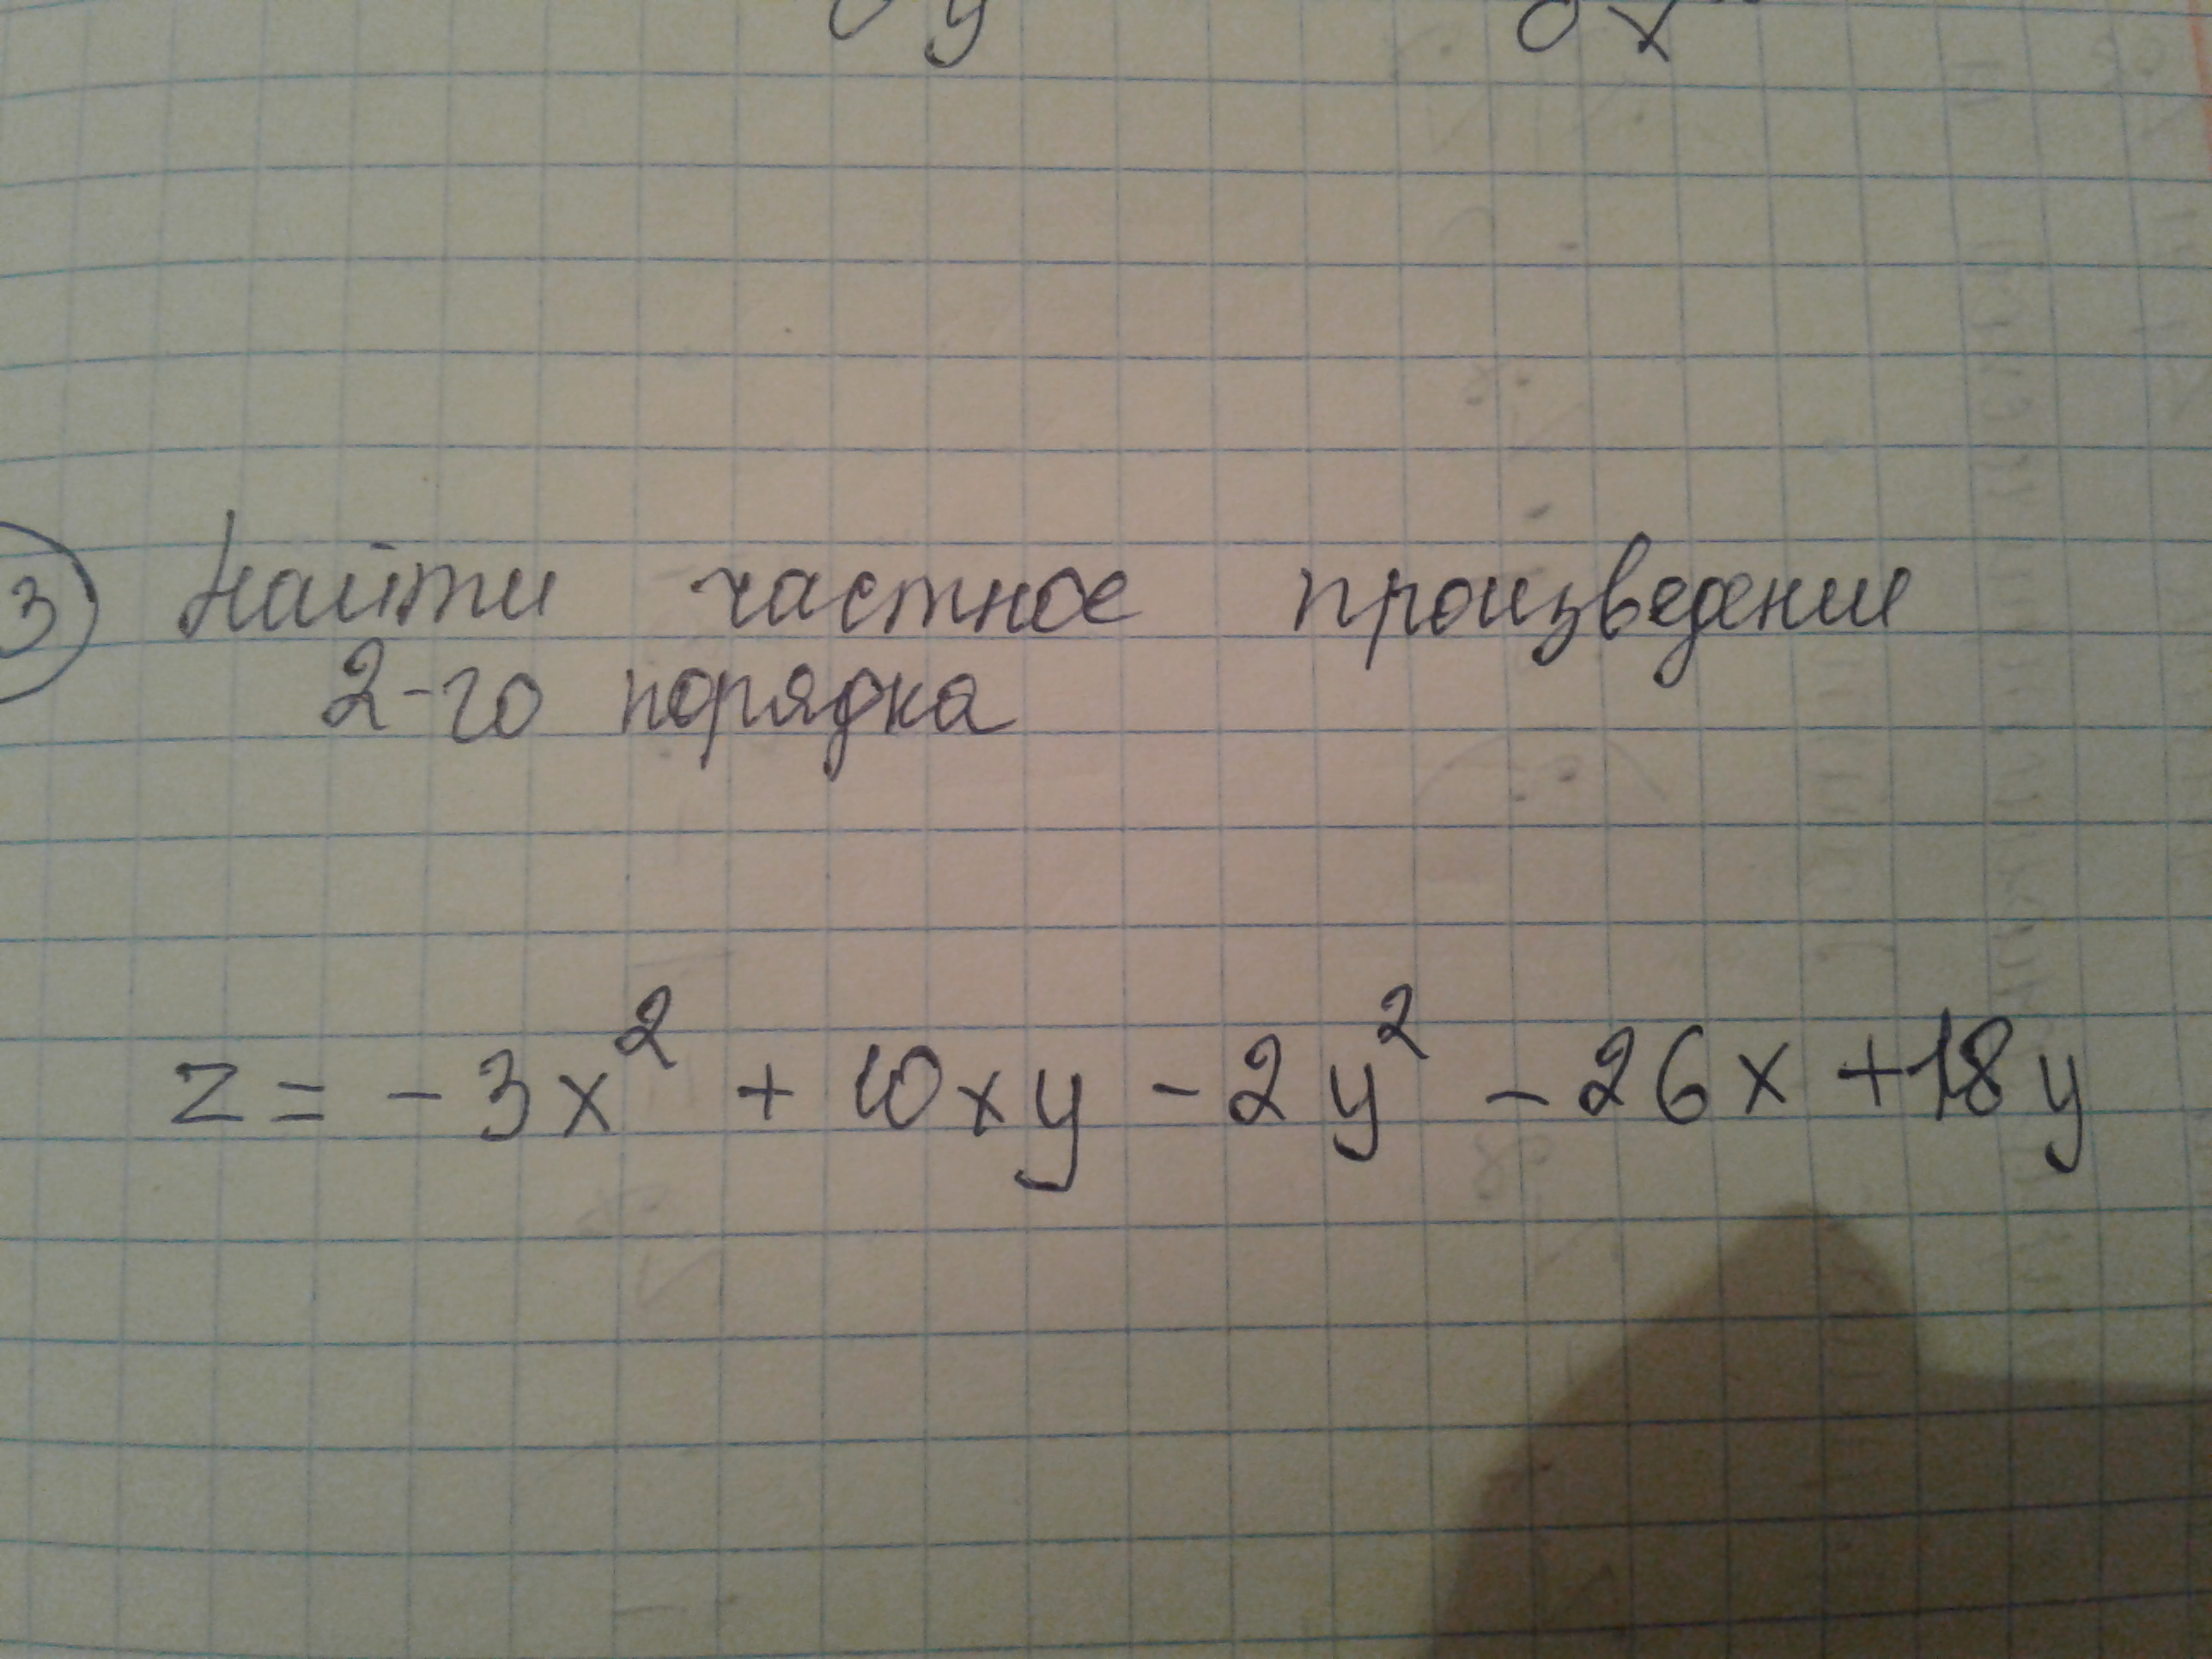 ∂y ∂x
3 Найти частное произведение
2-го порядка
z = - 3x² + 10xy - 2y² - 26x + 18y